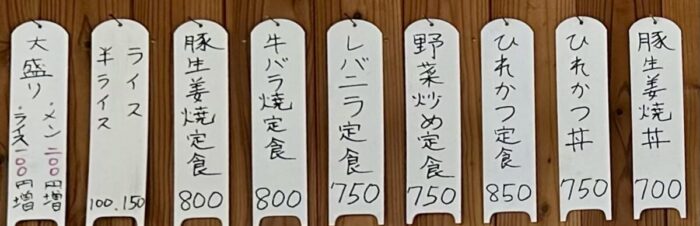 豚生姜焼丼
700
ひれかつ丼
750
ひれかつ定食
850
野菜炒め定食
750
レバニラ定食
750
牛バラ焼定食
800
豚生姜焼定食
800
ライス
150
半ライス
100.
大盛り
・メン二〇〇円増
・ライス一〇〇円増